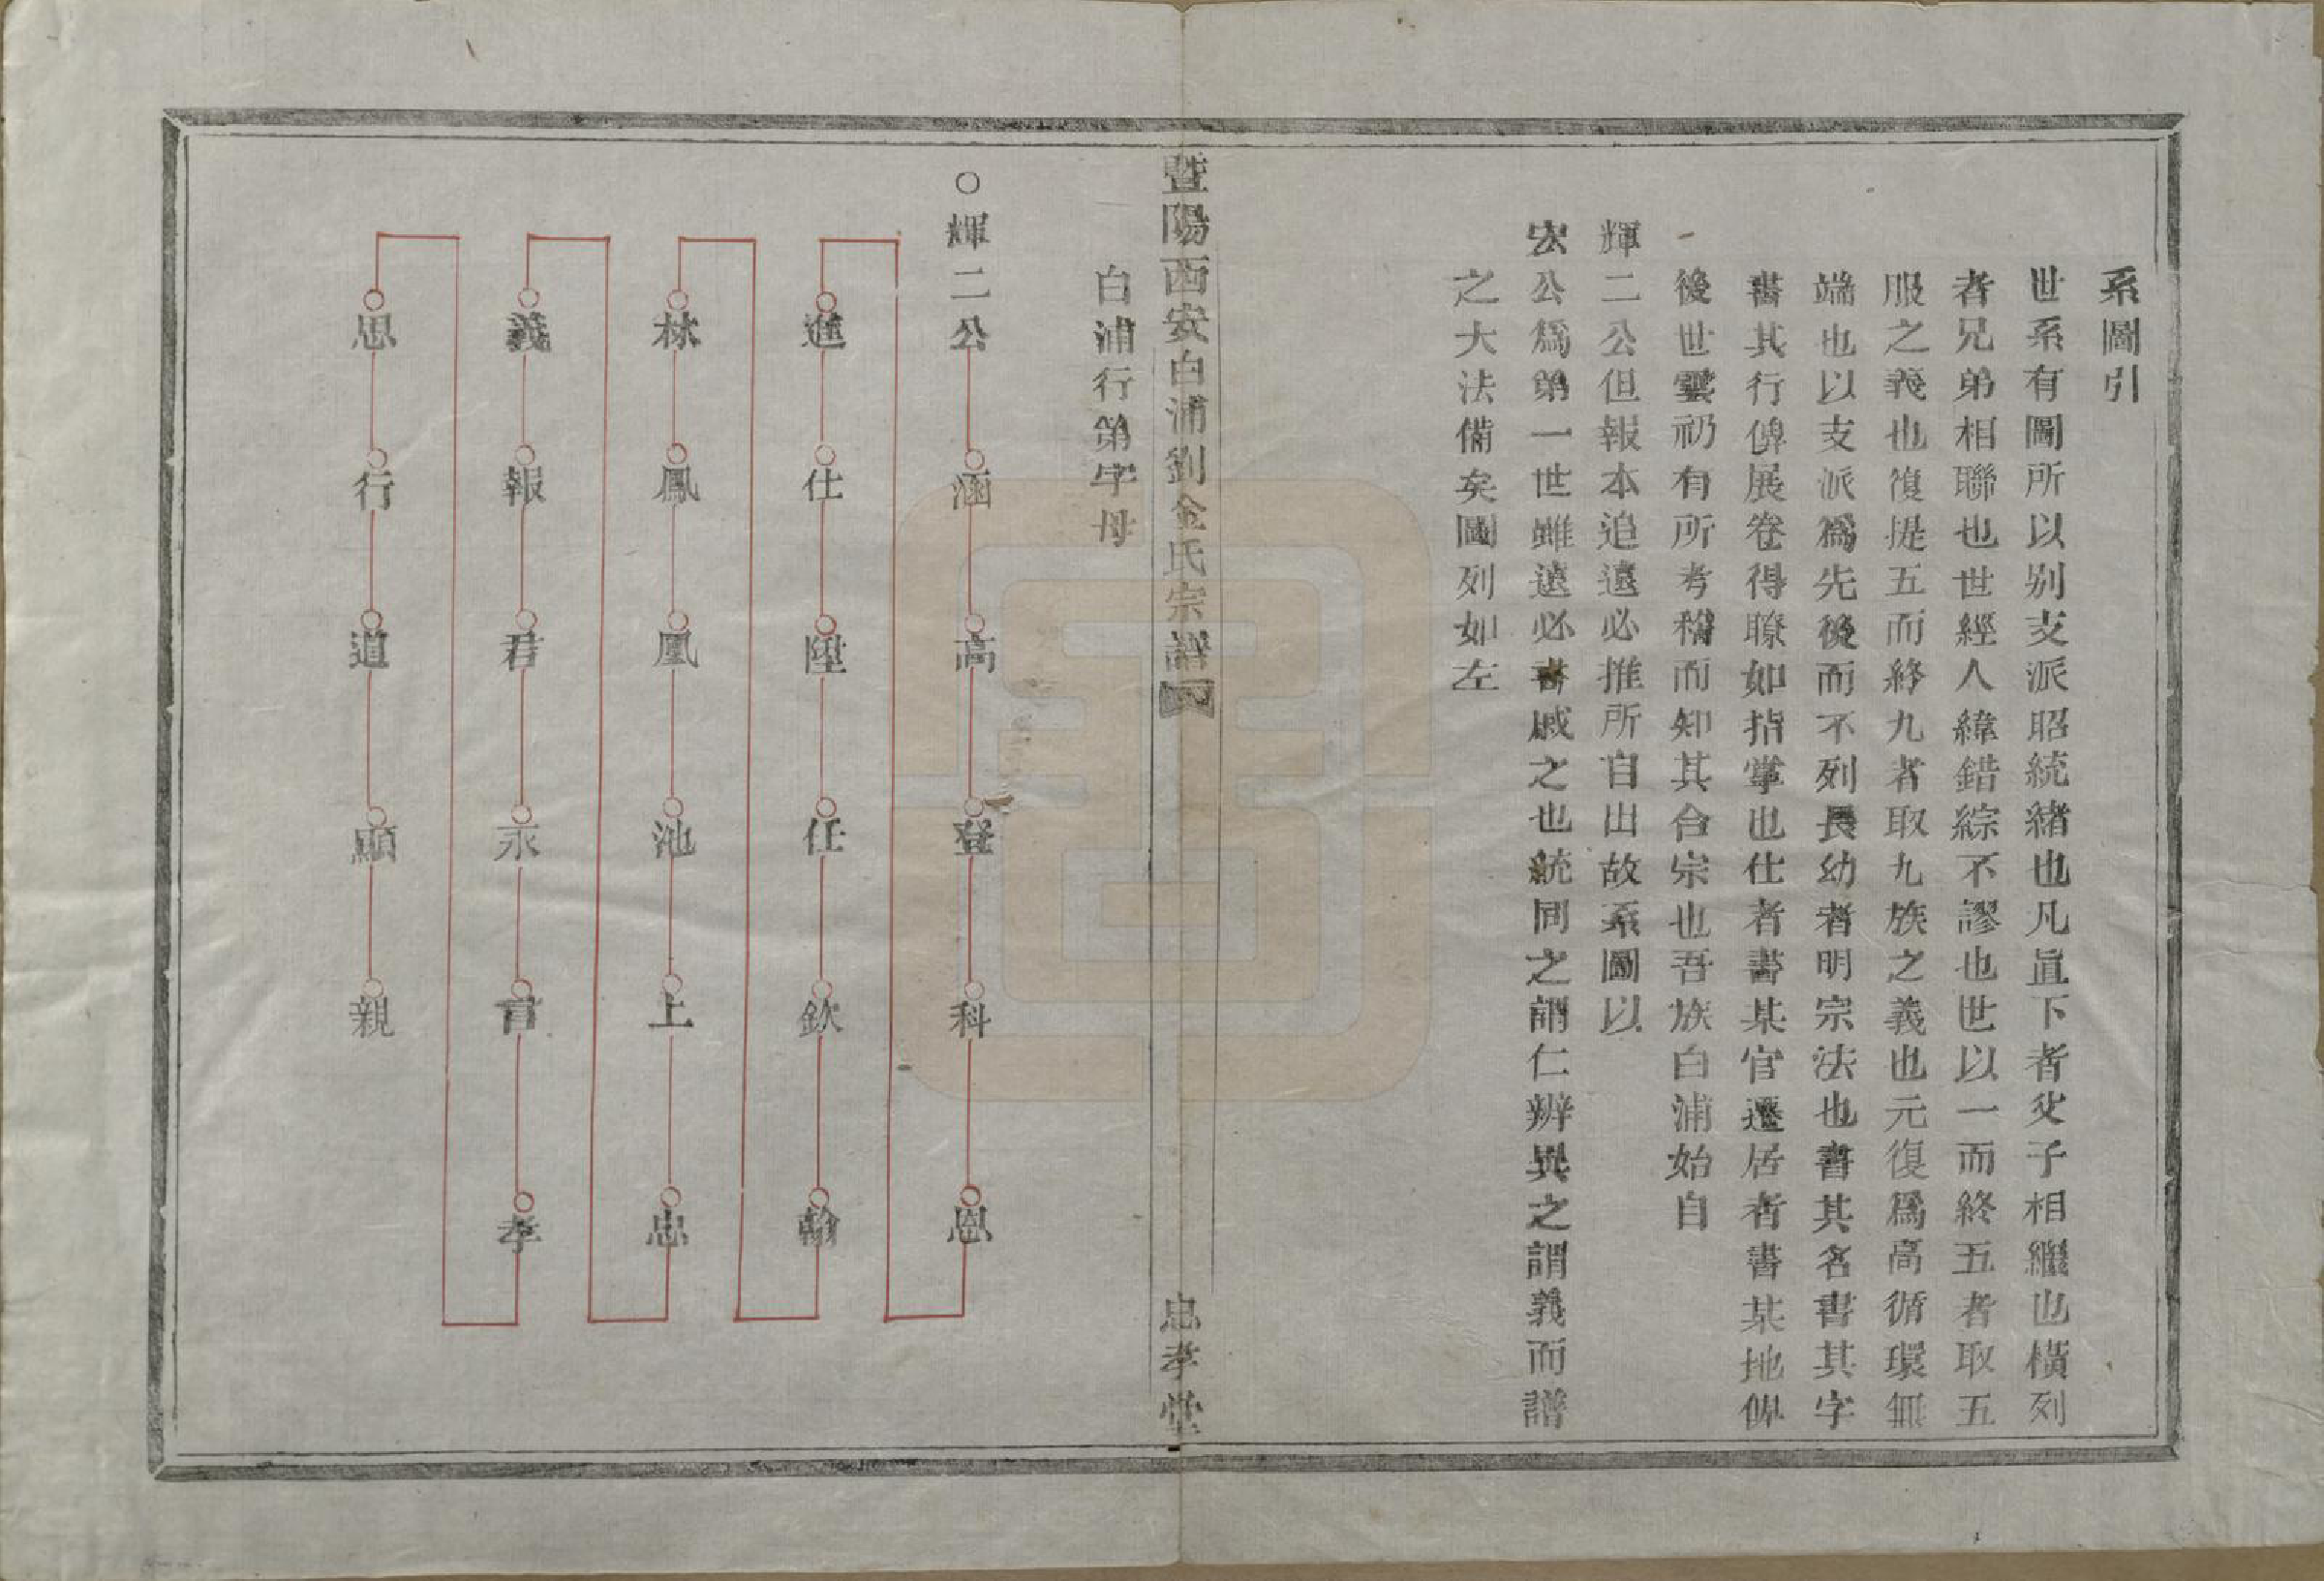 系圖引
世系有圖所以别支派昭統緒也凡直下者父子相繼也橫列
者兄弟相聯也世經人緯錯綜不謬也世以一而終五者取五
服之義也復提五而終九者取九族之義也元復爲高循環無
端也以支派爲先後而不列長幼者明宗法也書其名書其字
書其行俾展卷得瞭如指掌也仕者書某官遷居者書某地俾
後世雲礽有所考稽而知其合宗也吾族白浦始自
輝二公但報本追遠必推所自出故系圖以
宏公爲第一世雖遠必書戚之也統同之謂仁辨異之謂義而譜
之大法備矣圖列如左
暨陽西安白浦劉金氏宗譜
忠孝堂
白浦行第字母
○輝二公
涵
高
登
科
恩
進
仕
陞
任
欽
翰
林
鳳
凰
池
上
忠
義
報
君
永
言
孝
思
行
道
顯
親